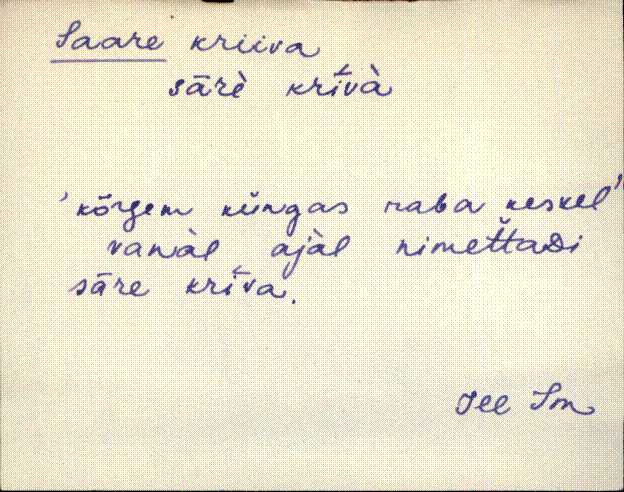 Saare kriiva
sārè krī̀và
'kõrgem küngas raba keskel'
vanàl ajàl nimetťaᴅi
sāre krīva.
Jee Sm